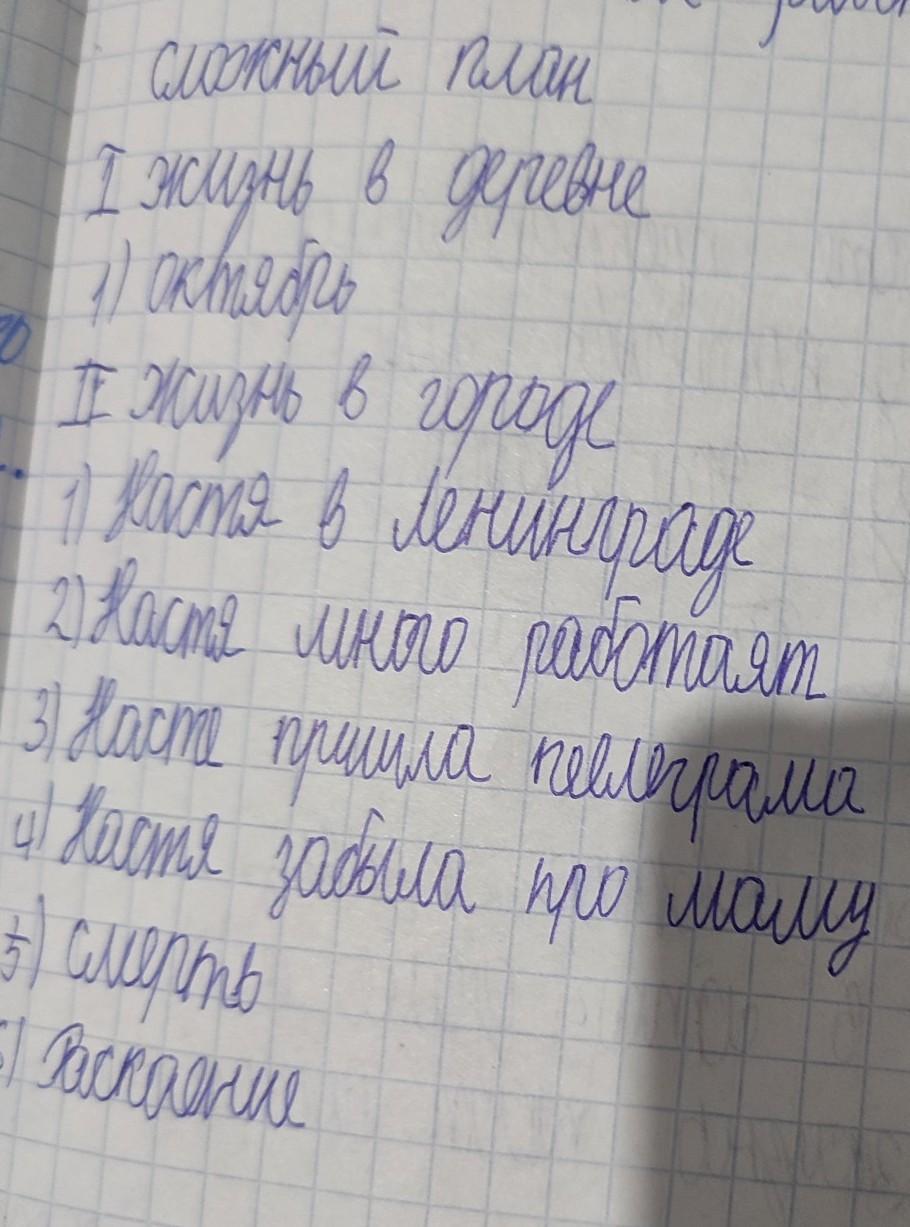 сложный план
I жизнь в деревне
1) октябрь
II жизнь в городе
1) Настя в Ленинграде
2) Настя много работаят
3) Насте пришла телеграма
4) Настя забыла про маму
5) Смерть
6) Раскаение